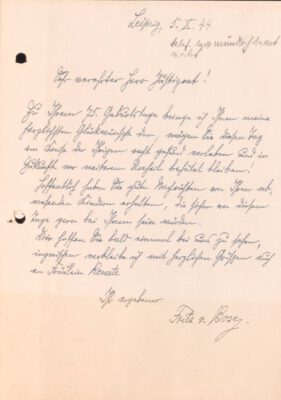 Leipzig, 5. X. 44
telef. mündlich beant
wortet
Sehr verehrter Herr Justizrat!
Zu Ihrem 75. Geburtstage bringe ich Ihnen meine
herzlichsten Glückwünsche dar, mögen Sie diesen Tag
im Kreise der Ihrigen recht gesund verleben und in
Zukunft vor weiterem behütet bleiben.
Hoffentlich haben Sie gute Nachrichten von Ihren ab-
wesenden Kindern erhalten, die sicher an diesem
Tage gern bei Ihnen sein würden.
Wir hoffen Sie bald einmal bei uns zu sehen,
inzwischen verbleibe ich mit herzlichen Grüßen auch
an Fräulein Renate
Ihr ergebener
Fritz v. Bosey.